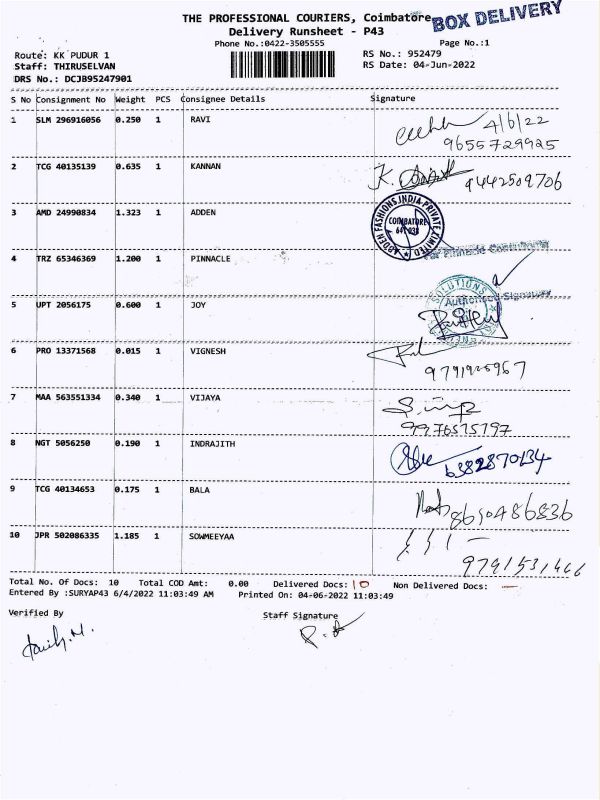 THE PROFESSIONAL COURIERS, Coimbatore
BOX DELIVERY
Delivery Runsheet - P43
Phone No.:0422-3505555
Page No.:1
Route: KK PUDUR 1
RS No.: 952479
Staff: THIRUSELVAN
RS Date: 04-Jun-2022
DRS No.: DCJB95247901
S No Consignment No Weight PCS Consignee Details Signature
1 SLM 296916056 0.250 1 RAVI
4/6/22
9655729925
2 TCG 40135139 0.635 1 KANNAN
9442509706
3 AMD 24990834 1.323 1 ADDEN
ADDEN FASHIONS INDIA PRIVATE LIMITED
COIMBATORE
641 038
4 TRZ 65346369 1.200 1 PINNACLE
For Pinnacle
SOLUTIONS
Authorised Signatory
5 UPT 2056175 0.600 1 JOY
6 PRO 13371568 0.015 1 VIGNESH
9791925967
7 MAA 563551334 0.340 1 VIJAYA
9976575797
8 NGT 5056250 0.190 1 INDRAJITH
6382870134
9 TCG 40134653 0.175 1 BALA
8690486836
10 JPR 502086335 1.185 1 SOWMEEYAA
9791531466
Total No. Of Docs: 10 Total COD Amt: 0.00 Delivered Docs: 10 Non Delivered Docs: —
Entered By :SURYAP43 6/4/2022 11:03:49 AM Printed On: 04-06-2022 11:03:49
Verified By Staff Signature